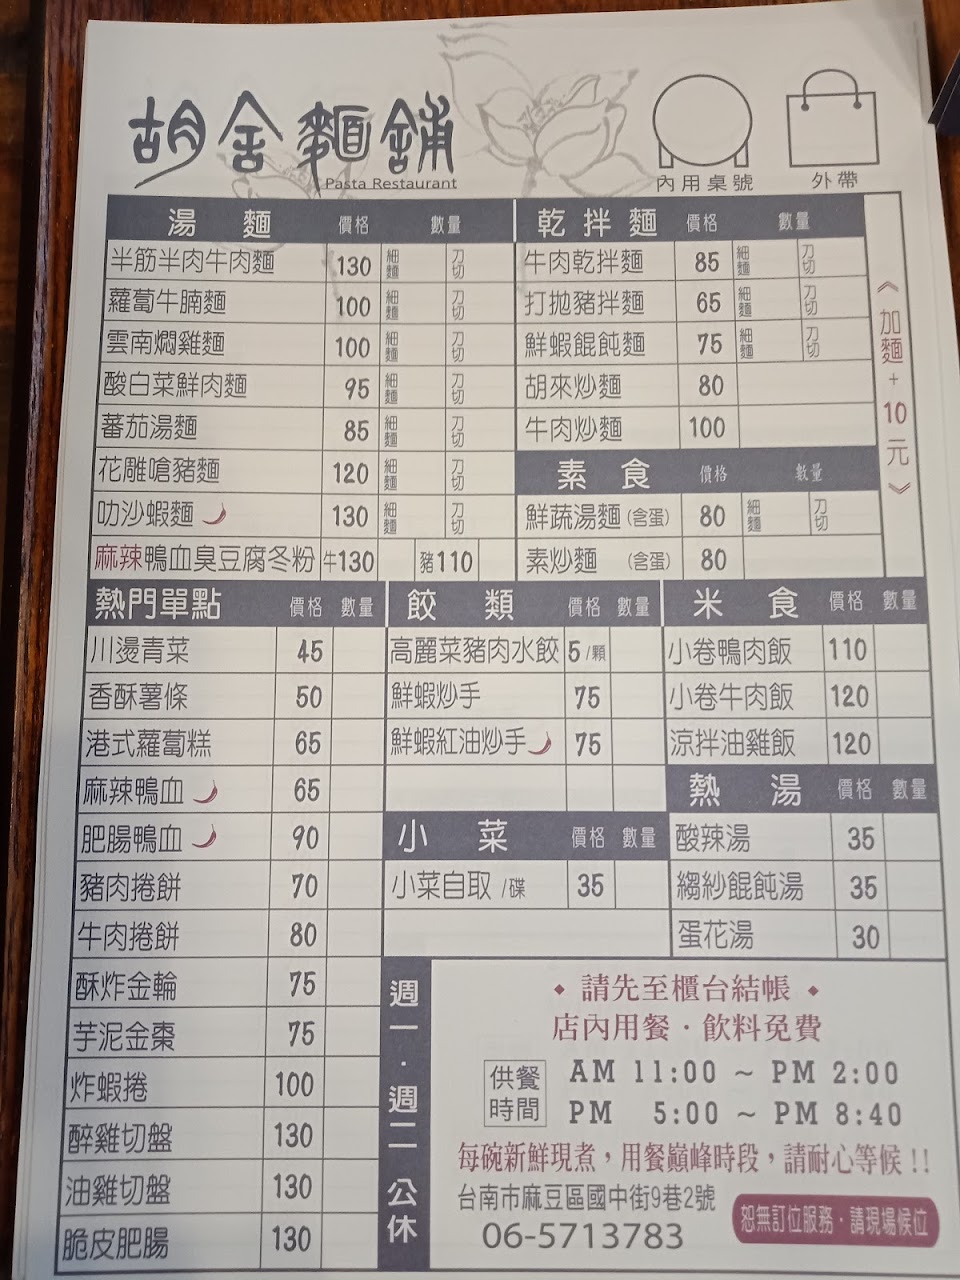 胡舍麵舖
Pasta Restaurant
內用桌號
外帶
湯 麵 價格 數量
半筋半肉牛肉麵 130 細麵 刀切
蘿蔔牛腩麵 100 細麵 刀切
雲南燜雞麵 100 細麵 刀切
酸白菜鮮肉麵 95 細麵 刀切
蕃茄湯麵 85 細麵 刀切
花雕嗆豬麵 120 細麵 刀切
叻沙蝦麵 130 細麵 刀切
麻辣鴨血臭豆腐冬粉 牛130 豬110
乾拌麵 價格 數量
牛肉乾拌麵 85 細麵 刀切
打拋豬拌麵 65 細麵 刀切
鮮蝦餛飩麵 75 細麵 刀切
胡來炒麵 80
牛肉炒麵 100
素 食 價格 數量
鮮蔬湯麵(含蛋) 80 細麵 刀切
素炒麵 (含蛋) 80
《加麵+10元》
熱門單點 價格 數量
川燙青菜 45
香酥薯條 50
港式蘿蔔糕 65
麻辣鴨血 65
肥腸鴨血 90
豬肉捲餅 70
牛肉捲餅 80
酥炸金輪 75
芋泥金棗 75
炸蝦捲 100
醉雞切盤 130
油雞切盤 130
脆皮肥腸 130
餃 類 價格 數量
高麗菜豬肉水餃 5/顆
鮮蝦炒手 75
鮮蝦紅油炒手 75
小 菜 價格 數量
小菜自取 /碟 35
米 食 價格 數量
小卷鴨肉飯 110
小卷牛肉飯 120
涼拌油雞飯 120
熱 湯 價格 數量
酸辣湯 35
縐紗餛飩湯 35
蛋花湯 30
週一・週二 公休
◆ 請先至櫃台結帳 ◆
店內用餐・飲料免費
供餐時間
AM 11:00 ~ PM 2:00
PM 5:00 ~ PM 8:40
每碗新鮮現煮，用餐巔峰時段，請耐心等候!!
台南市麻豆區國中街9巷2號
06-5713783
恕無訂位服務・請現場候位